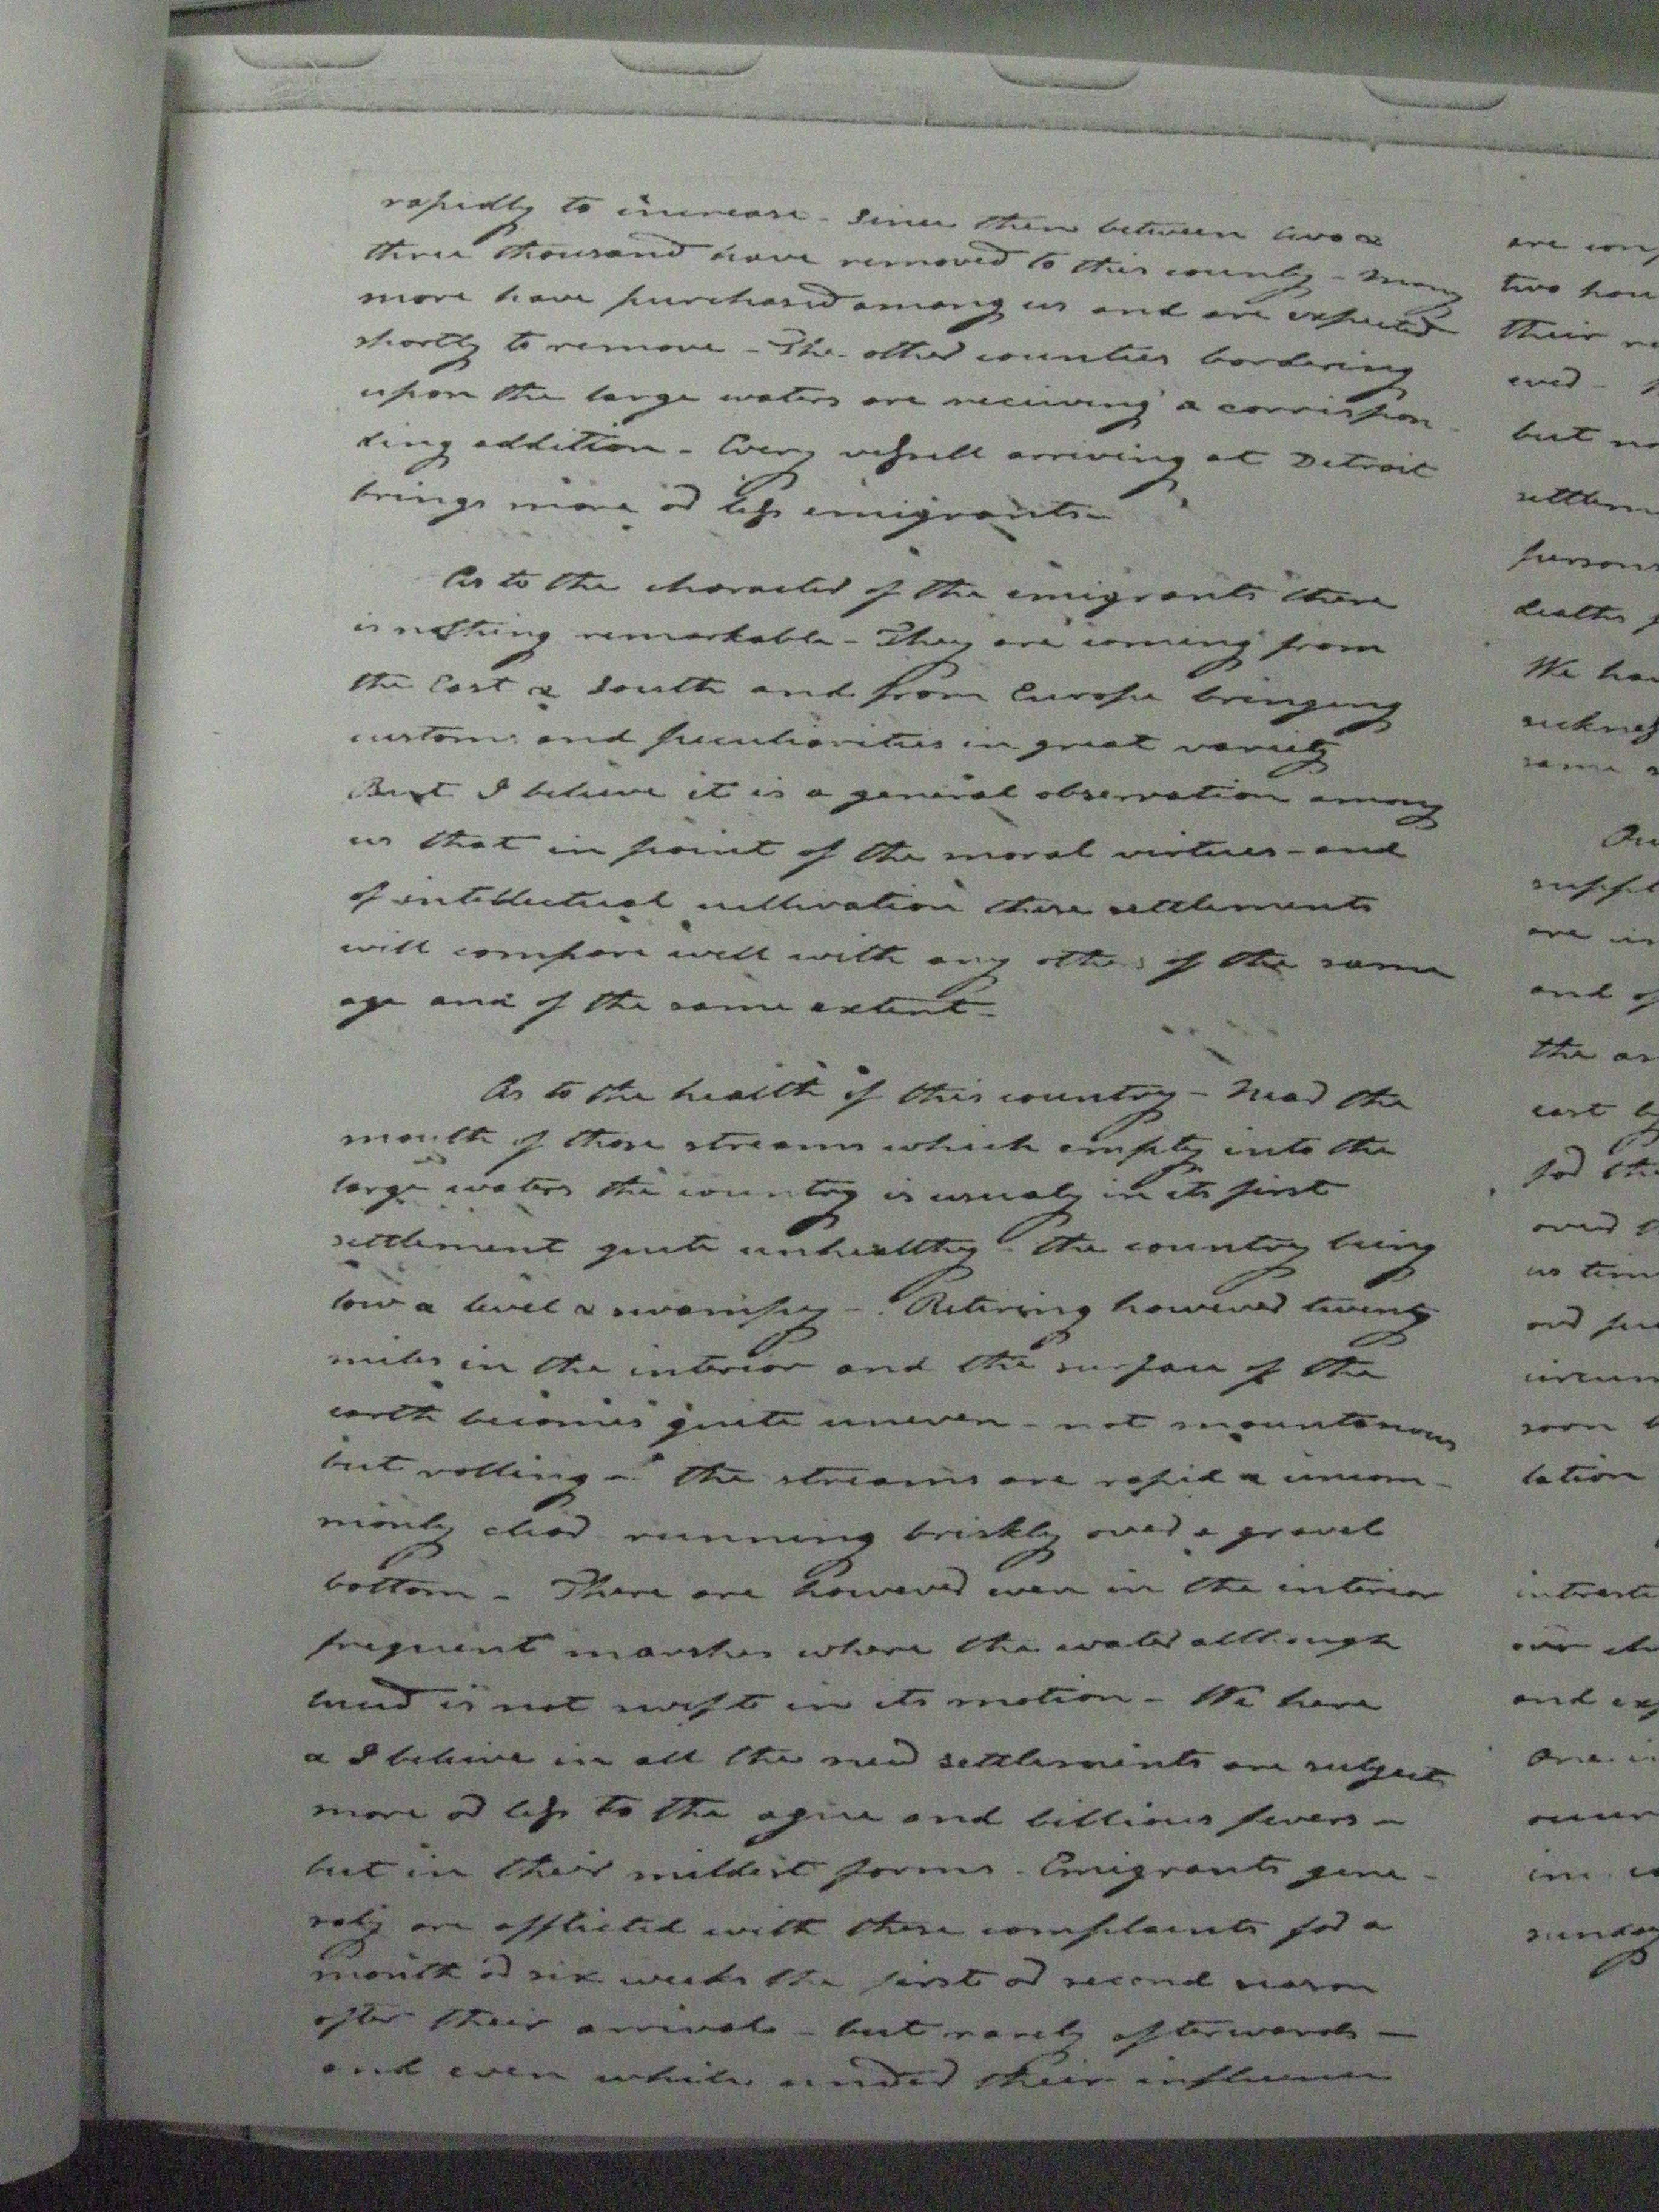 rapidly to increase - Since then between two &
three thousand have removed to this county - Many
more have purchased among us and are expected
shortly to remove - The other counties bordering
upon the large waters are receiving a correspon
ding addition - Every vessell arriving at Detroit
brings more or less emigrants -
As to the character of the emigrants there
is nothing remarkable - They are coming from
the East & South and from Europe bringing
customs and peculiarities in great variety
But I believe it is a general observation among
us that in point of the moral virtues - and
of intellectual cultivation these settlements
will compare well with any others of the same
age and of the same extent -
As to the health of this country - Near the
mouth of those streams which empty into the
large waters the country is usualy in its first
settlement quite unhealthy - the country being
low & level & swampy - Retiring however twenty
miles in the interior and the surface of the
earth becomes quite uneven - not mountanous
but rolling - the streams are rapid & uncom-
monly clear running briskly over a gravel
bottom - There are however even in the interior
frequent marshes where the water allthough
is not swift in its motion - We here
& I believe in all the new settlements are subject
more or less to the ague and billious fevers -
but in their mildest forms - Emigrants gene-
raly are afflicted with these complaints for a
month or six weeks the first or second season
after their arrival - but rarely afterwards -
and even while under their influence
are
two
their
but
We
and
the
for the
and
lation
and